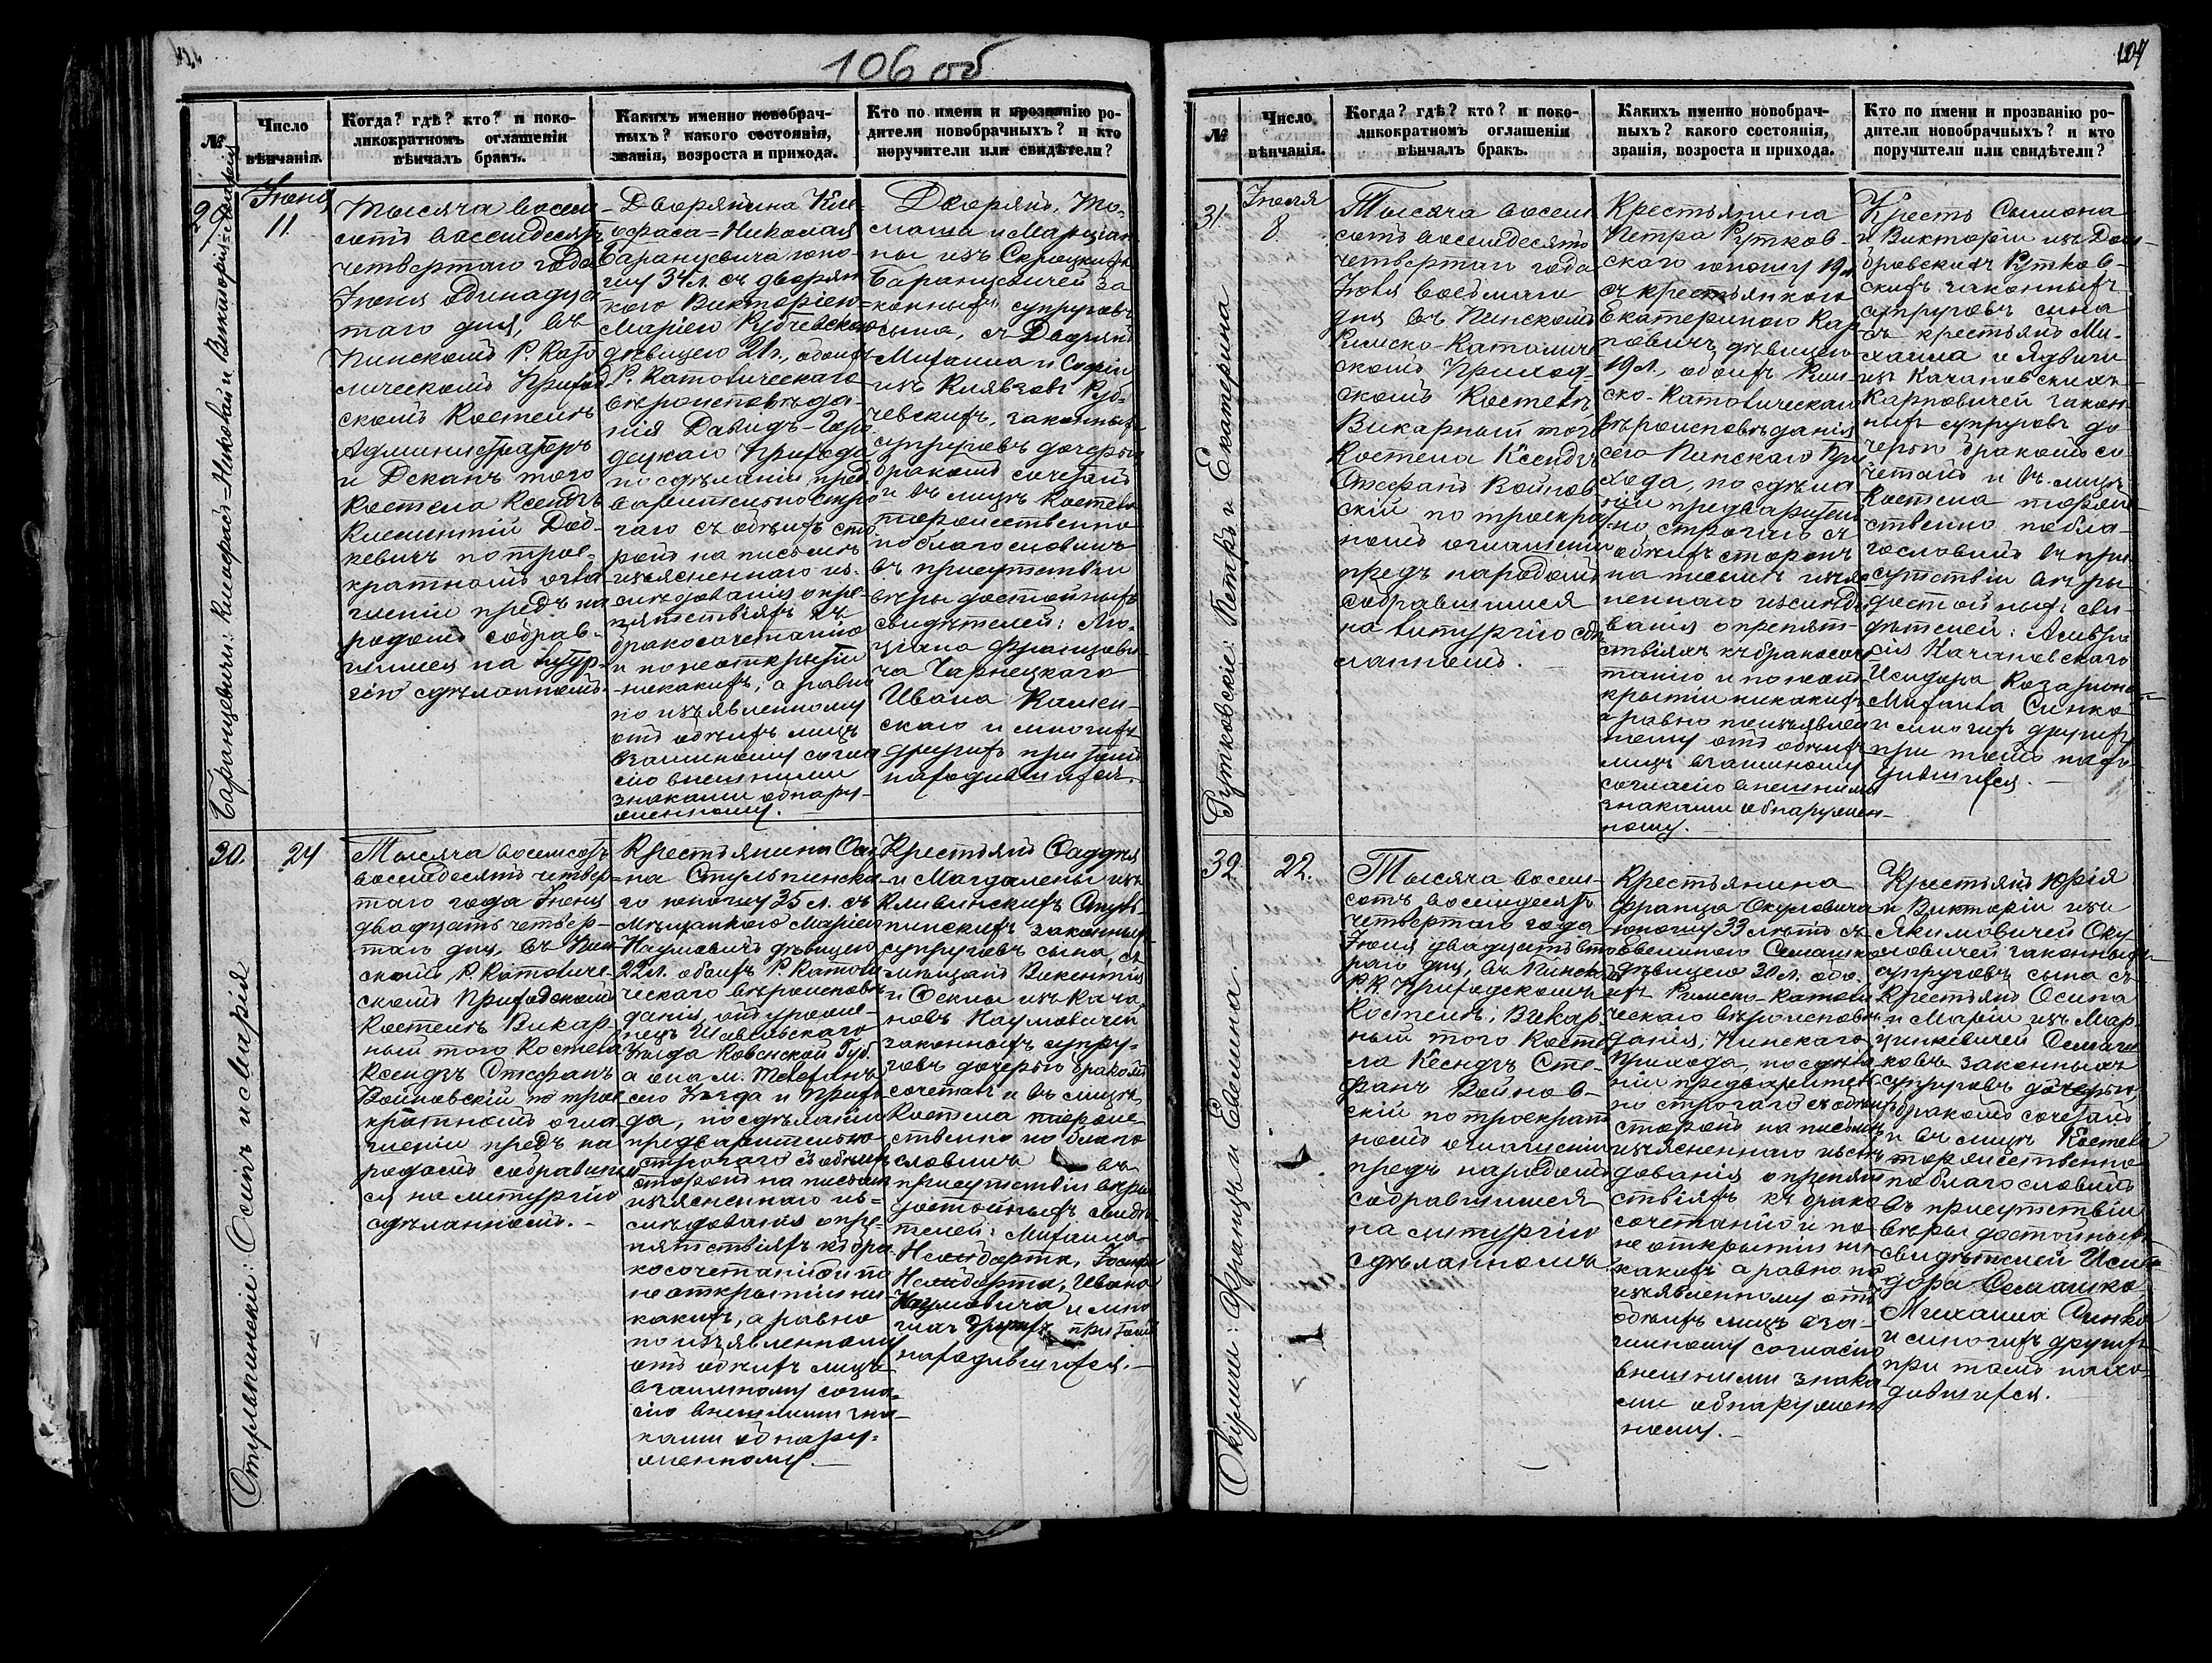 106 об
№
Число
вѣнчанія.
Когда? гдѣ? кто? и поко-
ликократномъ оглашеніи
вѣнчалъ бракъ.
Какихъ именно новобрач-
ныхъ? какого состоянія,
званія, возроста и прихода.
Кто по имени и прозванію ро-
дители новобрачныхъ? и кто
поручители или свидѣтели?
29
Баранцевичи: Никифоръ=Николай и Викторія=Марія
Іюня
11.
Тысяча восем-
сотъ восемдесятъ
четвертаго года
Іюня Одинадца-
таго дня, въ
Пинскомъ Р. Като
лическомъ Приход
скомъ Костелѣ
Администраторъ
и Деканъ того
Костела Ксендзъ
Климентій
кевичъ по трое-
кратномъ огла
шеніи предъ на
родомъ собрав-
шимся на Литур-
гію сдѣланномъ.
Дворянина
=Николая
Баранцевича юно-
шу 34 л. съ дворян
кою Викторіею=
Маріею Рубчевскою
дѣвицею 21 л., обоихъ
Р. Католическаго
вѣроисповѣда-
нія Давидъ-Горо
децкаго прихода
по сдѣланіи пред
варительно стро
гаго съ обѣихъ сто
ронъ на письмѣ
изъясненнаго из-
слѣдованія о пре-
пятствіяхъ къ
бракосочетанію
и по неоткрытіи
никакихъ, а равно
по изъявленному
отъ обѣихъ лицъ
взаимному согла
сію внешними
знаками обнару-
женному.
Дворянъ, То-
маша и Марціан
ны изъ
Баранцевичей за
конныхъ супруговъ
сына, съ Дворянъ
Михаила и Софіи
изъ Князевъ Руб-
чевскихъ, законныхъ
супруговъ дочерью
бракомъ сочеталъ
и въ лицѣ Костела
торжественно
поблагословилъ
въ присутствіи
вѣры достойныхъ
свидѣтелей: Лю-
ціана Францови-
ча Чарнецкаго
Ивана Камен-
скаго и многихъ
другихъ при томъ
находившихся.
30.
Стульпинскіе: Осипъ и Марія
24
Тысяча восемсотъ
восемдесятъ четвер-
таго года Іюня
двадцать четвер-
таго дня, въ Пин
скомъ Р. Католиче-
скомъ Приходскомъ
Костелѣ Викар-
ный того Костела
Ксендзъ Стефанъ
Войновскій по трое
кратномъ огла
шеніи предъ на
родомъ собравшим
ся на литургію
сдѣланномъ.
Крестьянина Оси
на Стульпинска-
го юношу 35 л. съ
Мѣщанкою Маріею
Наумовичъ дѣвицею
22 л. обоихъ Р. Католи
ческаго вѣроисповѣ
данія, онъ уроже-
нецъ Шавельскаго
уѣзда Ковенской Губ.
а она м.
сю уѣзда и прихо
да, по сдѣланіи
предварительно
строгаго съ обѣихъ
сторонъ на письмѣ
изъясненнаго из-
слѣдованія о пре-
пятствіяхъ къ бра
косочетанію и по
неоткрытіи ни-
какихъ, а равно
по изъявленному
отъ обѣихъ лицъ
взаимному согла-
сію внешними зна-
ками обнару-
женному.
Крестьянъ Фаддея
и Магдалены изъ
Кливинскихъ Стуль-
пинскихъ законныхъ
супруговъ сына, съ
мѣщанъ Викентія
и Феклы изъ Кача
новъ Наумовичей
законныхъ супру-
говъ дочерью бракомъ
сочеталъ и въ лицѣ
Костела торже-
ственно по благо
словилъ въ
присутствіи вѣры
достойныхъ свидѣ-
телей: Михаила
Нейдорта, Іосифа
Нейдорта, Ивана
Наумовича и мно
гихъ другихъ при томъ
находившихся.
107
№
Число
вѣнчанія.
Когда? гдѣ? кто? и поко-
ликократномъ оглашеніи
вѣнчалъ бракъ.
Какихъ именно новобрач-
ныхъ? какого состоянія,
званія, возроста и прихода.
Кто по имени и прозванію ро-
дители новобрачныхъ? и кто
поручители или свидѣтели?
31.
Рутковскіе: Петръ и Екатерина
Іюля
8
Тысяча восем
сотъ восемдесятъ
четвертаго года
Іюля восьмаго
дня въ Пинскомъ
Римско-Католиче
скомъ Приход-
скомъ Костелѣ
Викарный того
Костела Ксендзъ
Стефанъ Войнов
скій по троекра
номъ оглашеніи
предъ народомъ
собравшимся
на литургію сдѣ
ланномъ.
Крестьянина
Петра Рутков-
скаго юношу 19 л.
съ крестьянкою
Екатериною Кар
повичъ дѣвицею
19 л., обоихъ Рим-
ско-Католическаго
вѣроисповѣданія
сего Пинскаго При
хода, по сдѣла
ніи предваритель
но строгаго съ
обѣихъ сторонъ
на письмѣ изъяс
неннаго изслѣдо
ванія о препят-
ствіяхъ къ бракосоч
танію и по неот
крытіи никакихъ
а равно по изъявлен
ному отъ обѣихъ
лицъ взаимному
согласію внешними
знаками обнаружен-
ному.
Крестъ Сымона
и Викторіи изъ Дом-
бровскихъ Рутков-
скихъ законныхъ
супруговъ сына
съ крестьянъ Ми-
хаила и Ядвиги
изъ Качановскихъ
Карповичей закон
ныхъ супруговъ до
черью бракомъ со-
четалъ и въ лицѣ
Костела торже
ственно побла-
гословилъ въ при
сутствіи вѣры
достойныхъ сви-
дѣтелей: Амбро
сія Качановскаго
Исидора
Михаила Синко
и многихъ другихъ
при томъ нахо
дившихся.
32.
Окуличи: Францъ и Евелина
22.
Тысяча восем-
сотъ восемдесятъ
четвертаго года
Іюля двадцать вто
раго дня, въ Пинскомъ
Р. К. Приходскомъ
Костелѣ, Викар-
ный того Косте
ла Ксендзъ Сте-
фанъ Войнов-
скій по троекрат
номъ оглашеніи
предъ народомъ
собравшимся
на литургію
сдѣланномъ
Крестьянина
Франца Окуловича
юношу 33 лѣтъ съ
Евелиною Семашко
дѣвицею 30 л. обо-
ихъ Римско-католи
ческаго вѣроисповѣ
данія, Пинскаго
прихода, по сдѣла
ніи предварител
но строгаго съ обѣихъ
сторонъ на письмѣ
изъясненнаго изслѣ
дованія о препят
ствіяхъ къ брако
сочетанію и по
не открытіи ни
какихъ а равно по
изъявленному отъ
обѣихъ лицъ вза-
имному согласію
внешними знака
ми обнаружен
ному.
Крестьянъ Юрія
и Викторіи изъ
Якимовичей Оку
ловичей законныхъ
супруговъ сына съ
Крестьянъ Осипа
и Маріи изъ Мар-
цинкевичей Семаш
ковъ законныхъ
супруговъ дочерью
бракомъ сочеталъ
и въ лицѣ Костела
торжественно
поблагословилъ
въ присутствіи
вѣры достойныхъ
свидѣтелей Иси
дора Семашко
Михаила Синко
и многихъ другихъ
при томъ нахо-
дившихся.